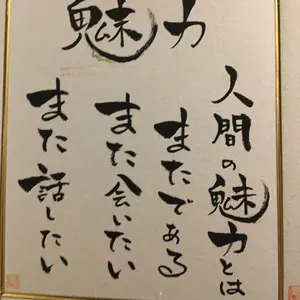 魅力
人間の魅力とは
まてである
また会いたい
また話したい